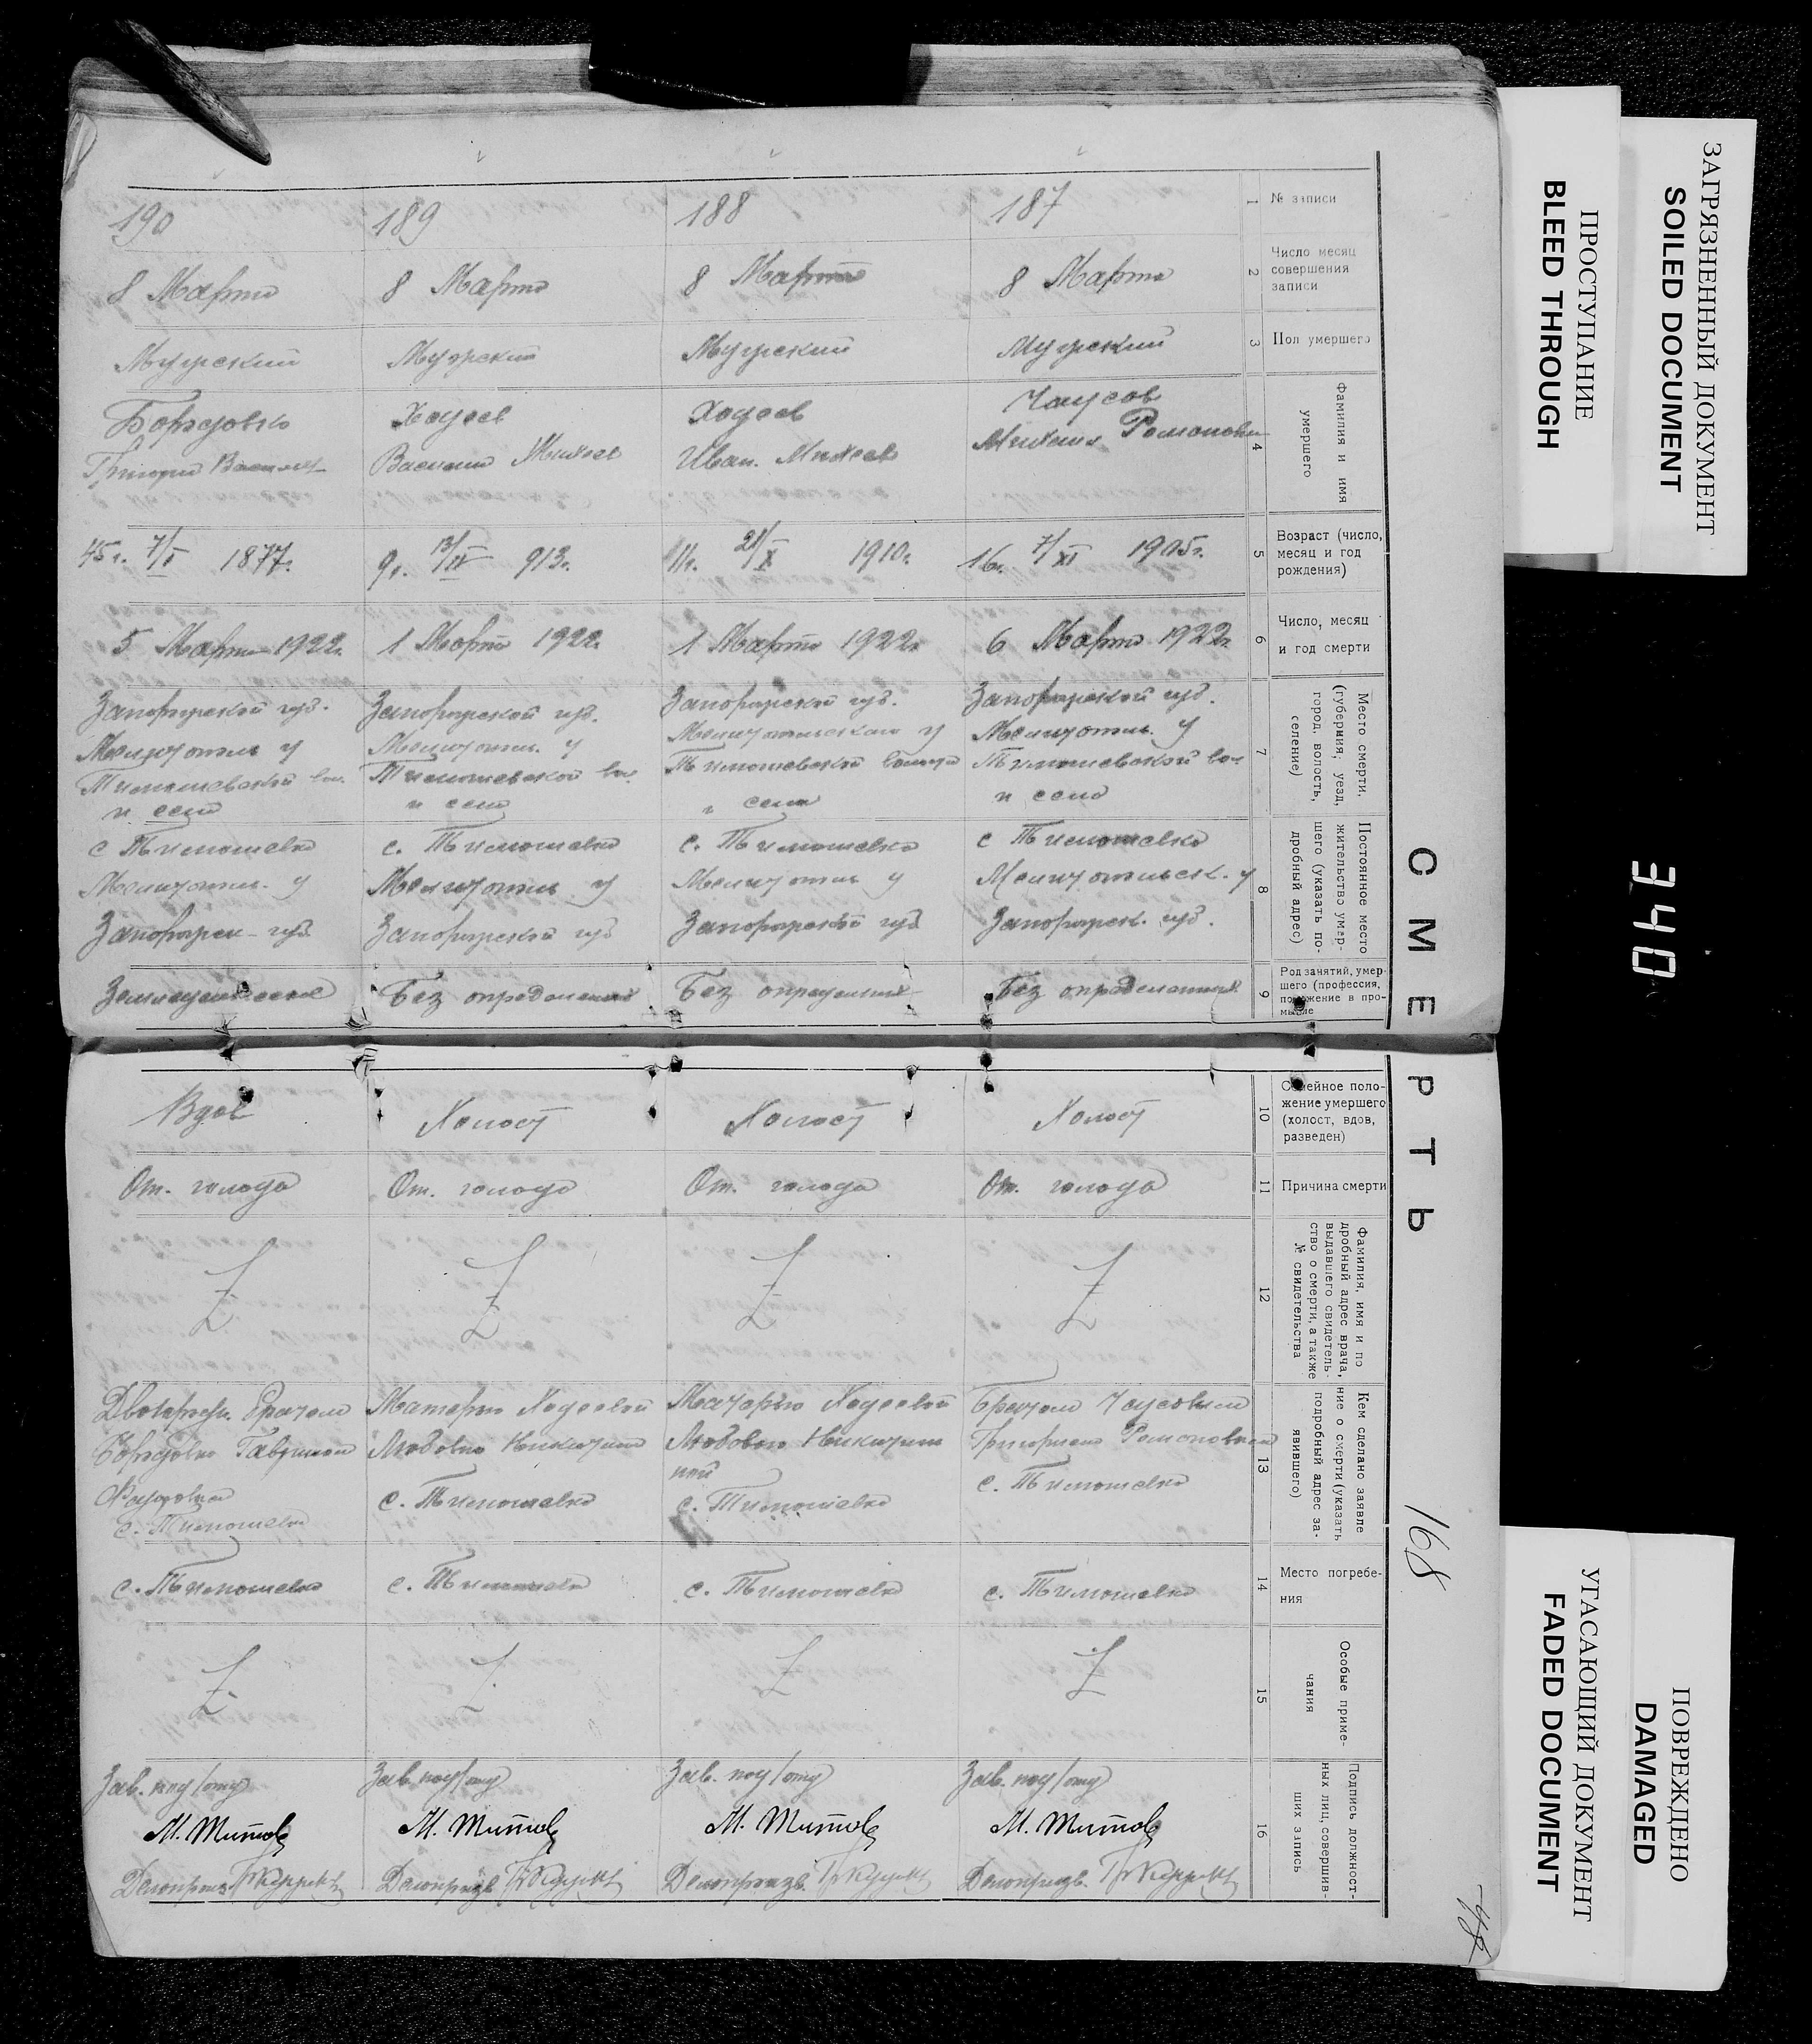 ЗАГРЯЗНЕННЫЙ ДОКУМЕНТ
SOILED DOCUMENT
ПРОСТУПАНИЕ
BLEED THROUGH
340
СМЕРТЬ
168
1 № записи
190
189
188
187
2 Число месяц
совершения
записи
8 Марта
8 Марта
8 Марта
8 Марта
3 Пол умершего
Мужский
Мужский
Мужский
Мужский
4 Фамилия и имя
умершего
Григорий
Ходеев
Василий Михеев
Ходеев
Иван. Михеев
Чаусов
Михаил Романович
5 Возраст (число,
месяц и год
рождения)
45 г. 7/I 1877г.
9г. 13/IV 913г.
11г. 21/X 1910г.
16г. 7/XI 1905г.
6 Число, месяц
и год смерти
5 Марта 1922г.
1 Марта 1922г.
1 Марта 1922г.
6 Марта 1922г.
7 Место смерти.
(губерния, уезд,
город, волость,
селение)
Запорожской губ.
Мелитополь у
Тимошевской вол.
и село
Запорожской губ.
Мелитополь. у
Тимошевской вол
и село
Запорожской губ.
Мелитопольский у
Тимошевской волости
и село
Запорожской губ.
Мелитополь. у
Тимошевской вол
и село
8 Постоянное место
жительство умер-
шего (указать по-
дробный адрес)
с Тимошевка
Мелитополь. у
Запорожск. губ
с. Тимошевка
Мелитополь у
Запорожской губ
с. Тимошевка
Мелитополь у
Запорожской губ
с Тимошевка
Мелитопольск. у
Запорожск. губ.
9 Род занятий, умер-
шего (профессия,
положение в про-
мысле
Без определенных
Без определенных
Без определенных
10 Семейное поло-
жение умершего
(холост, вдов,
разведен)
Вдов
Холост
Холост
Холост
11 Причина смерти
От. голода
От. голода
От. голода
От. голода
12 Фамилия, имя и по
дробный адрес врача,
выдавшего свидетель-
ство о смерти, а также
№ свидетельства
Z
Z
Z
Z
13 Кем сделано заявле
ние о смерти (указать
подробный адрес за-
явившего)
с. Тимошевка
Матерью Ходеевой
Любовью
с. Тимошевка
Матерью Ходеевой
Любовью Никитич
ной
с. Тимошевка
Братом Чаусовым
Григорием Романовичем
с. Тимошевка
14 Место погребе-
ния
с. Тимошевка
с. Тимошевка
с. Тимошевка
с. Тимошевка
15 Особые приме-
чания
Z
Z
Z
Z
16 Подпись должност-
ных лиц, совершив-
ших запись
Зав. под/отд
М. Титов
Делопроизв.
Зав. под/отд
М. Титов
Делопроизв.
Зав. под/отд
М. Титов
Делопроизв.
Зав. под/отд
М. Титов
Делопроизв.
ПОВРЕЖДЕНО
DAMAGED
УГАСАЮЩИЙ ДОКУМЕНТ
FADED DOCUMENT